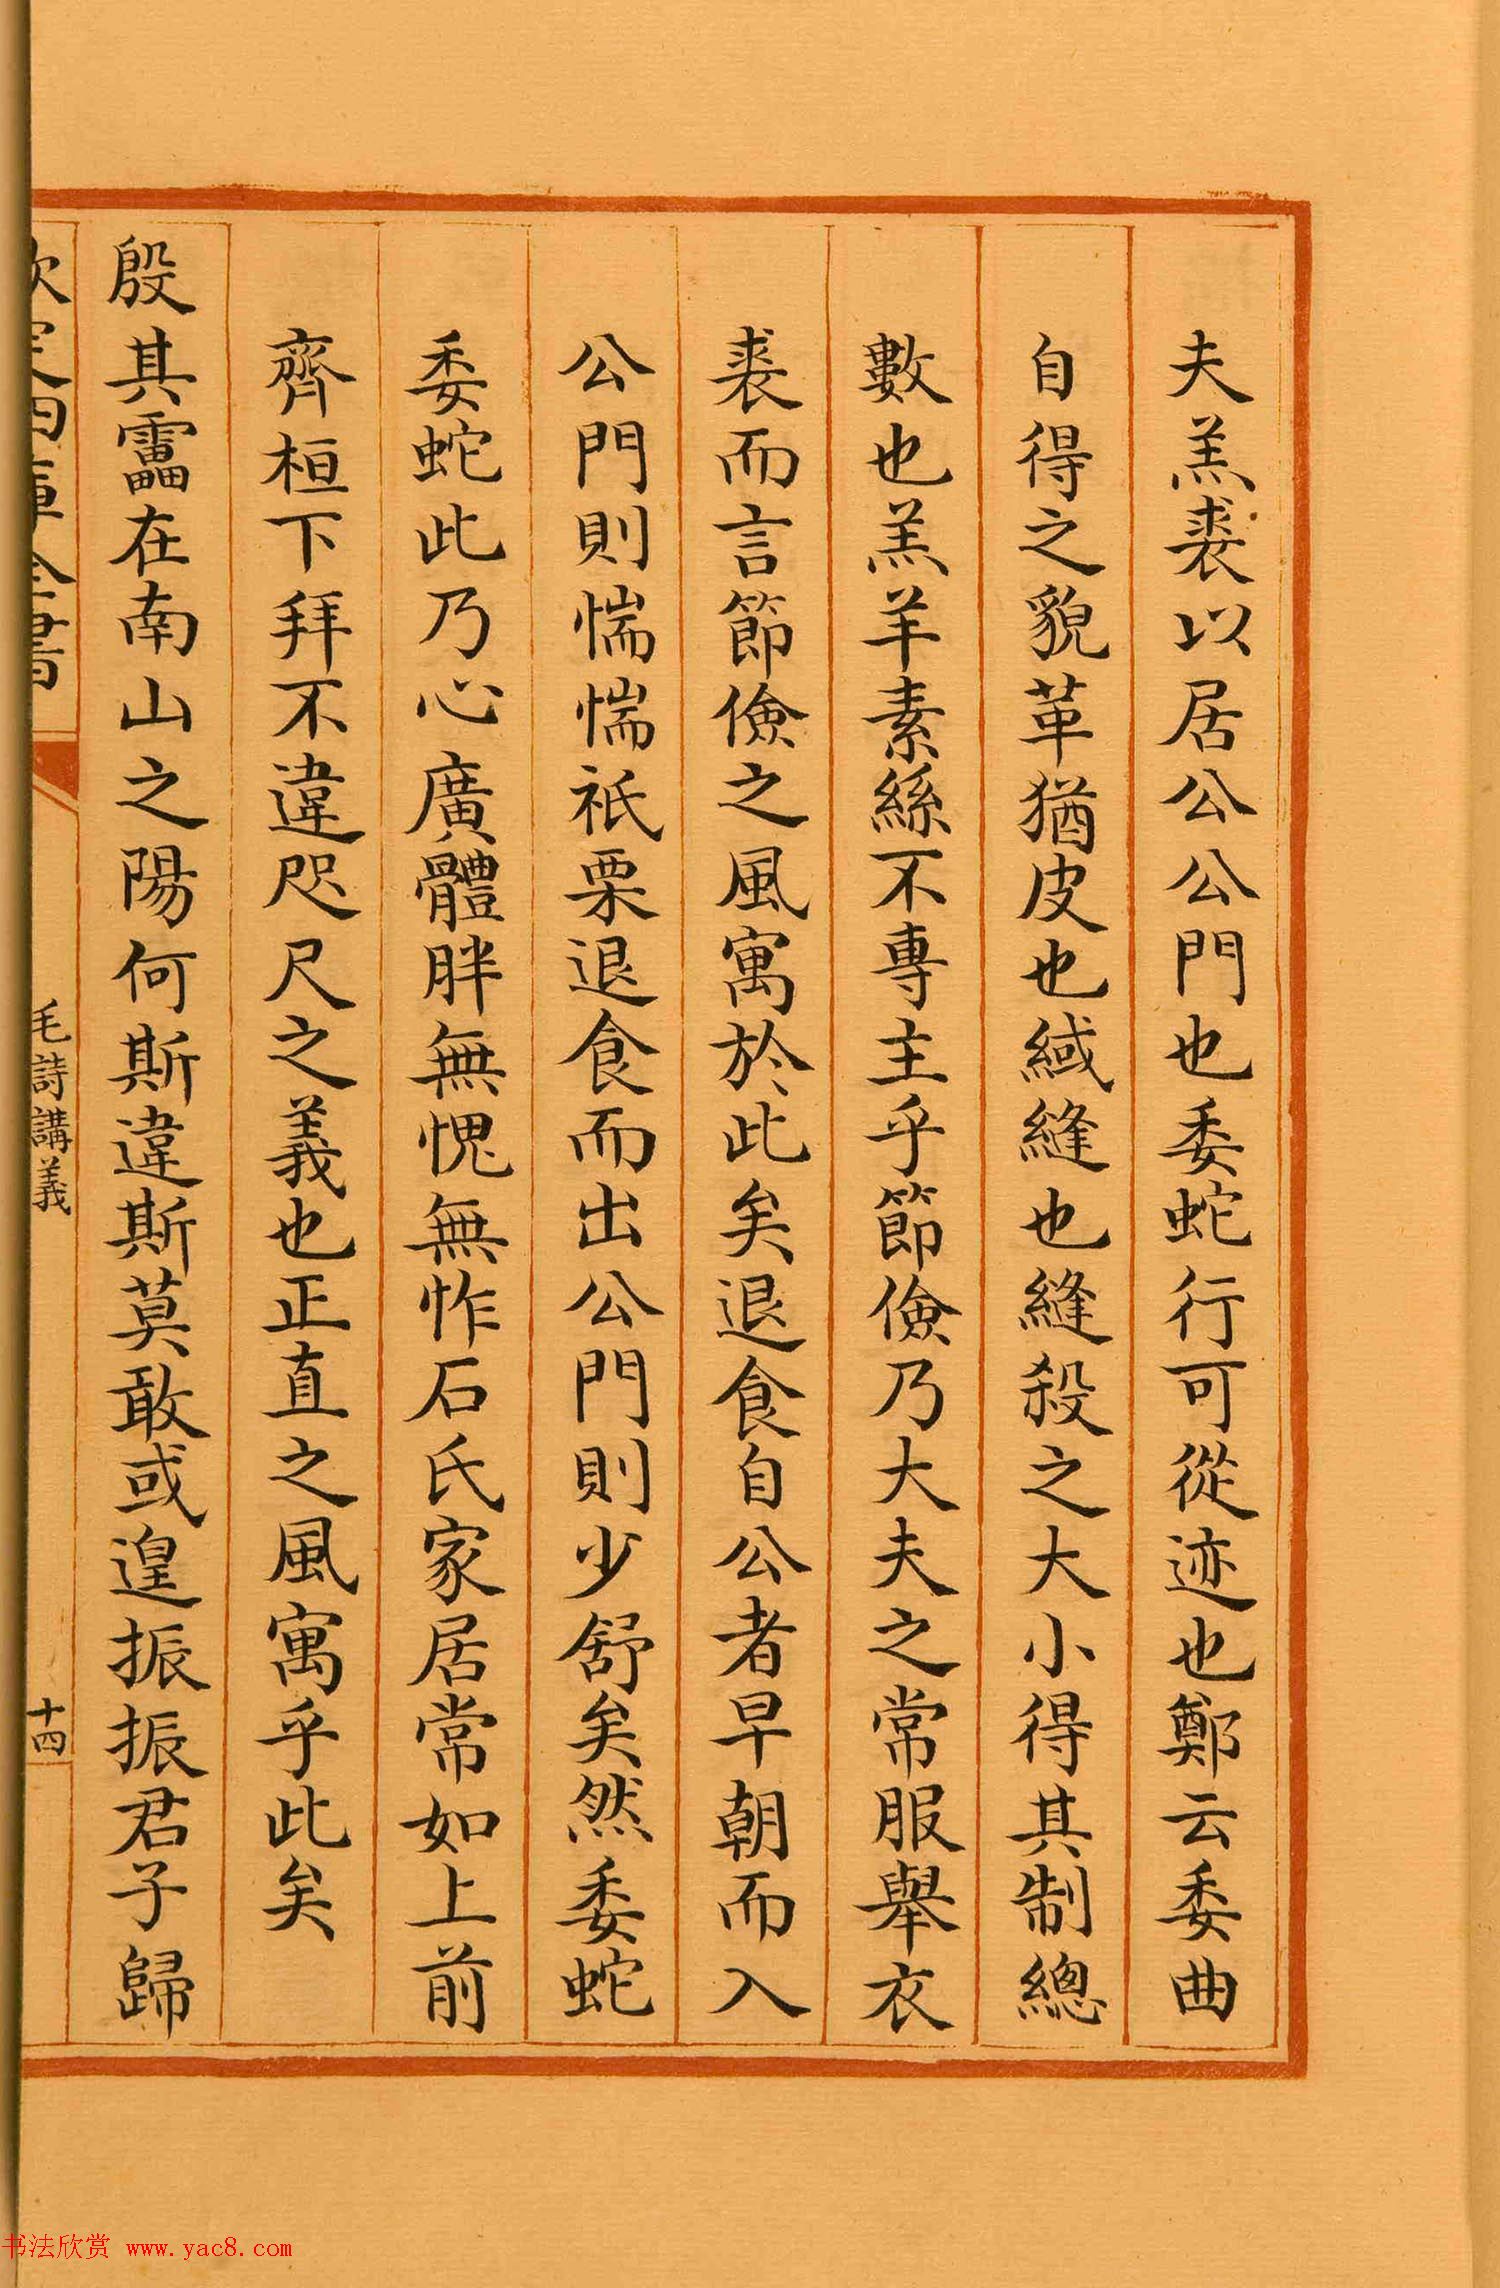 夫羔裘以居公公門也委蛇行可從迹也鄭云委曲
自得之貌革猶皮也緎縫也縫殺之大小得其制總
數也羔羊素絲不專主乎節儉乃大夫之常服舉衣
裘而言節儉之風寓於此矣退食自公者早朝而入
公門則惴惴祇栗退食而出公門則少舒矣然委蛇
委蛇此乃心廣體胖無愧無怍石氏家居常如上前
齊桓下拜不違咫尺之義也正直之風寓乎此矣
殷其靁在南山之陽何斯違斯莫敢或遑振振君子歸
欽定四庫全書
毛詩講義
十四
书法欣赏 www.yac8.com